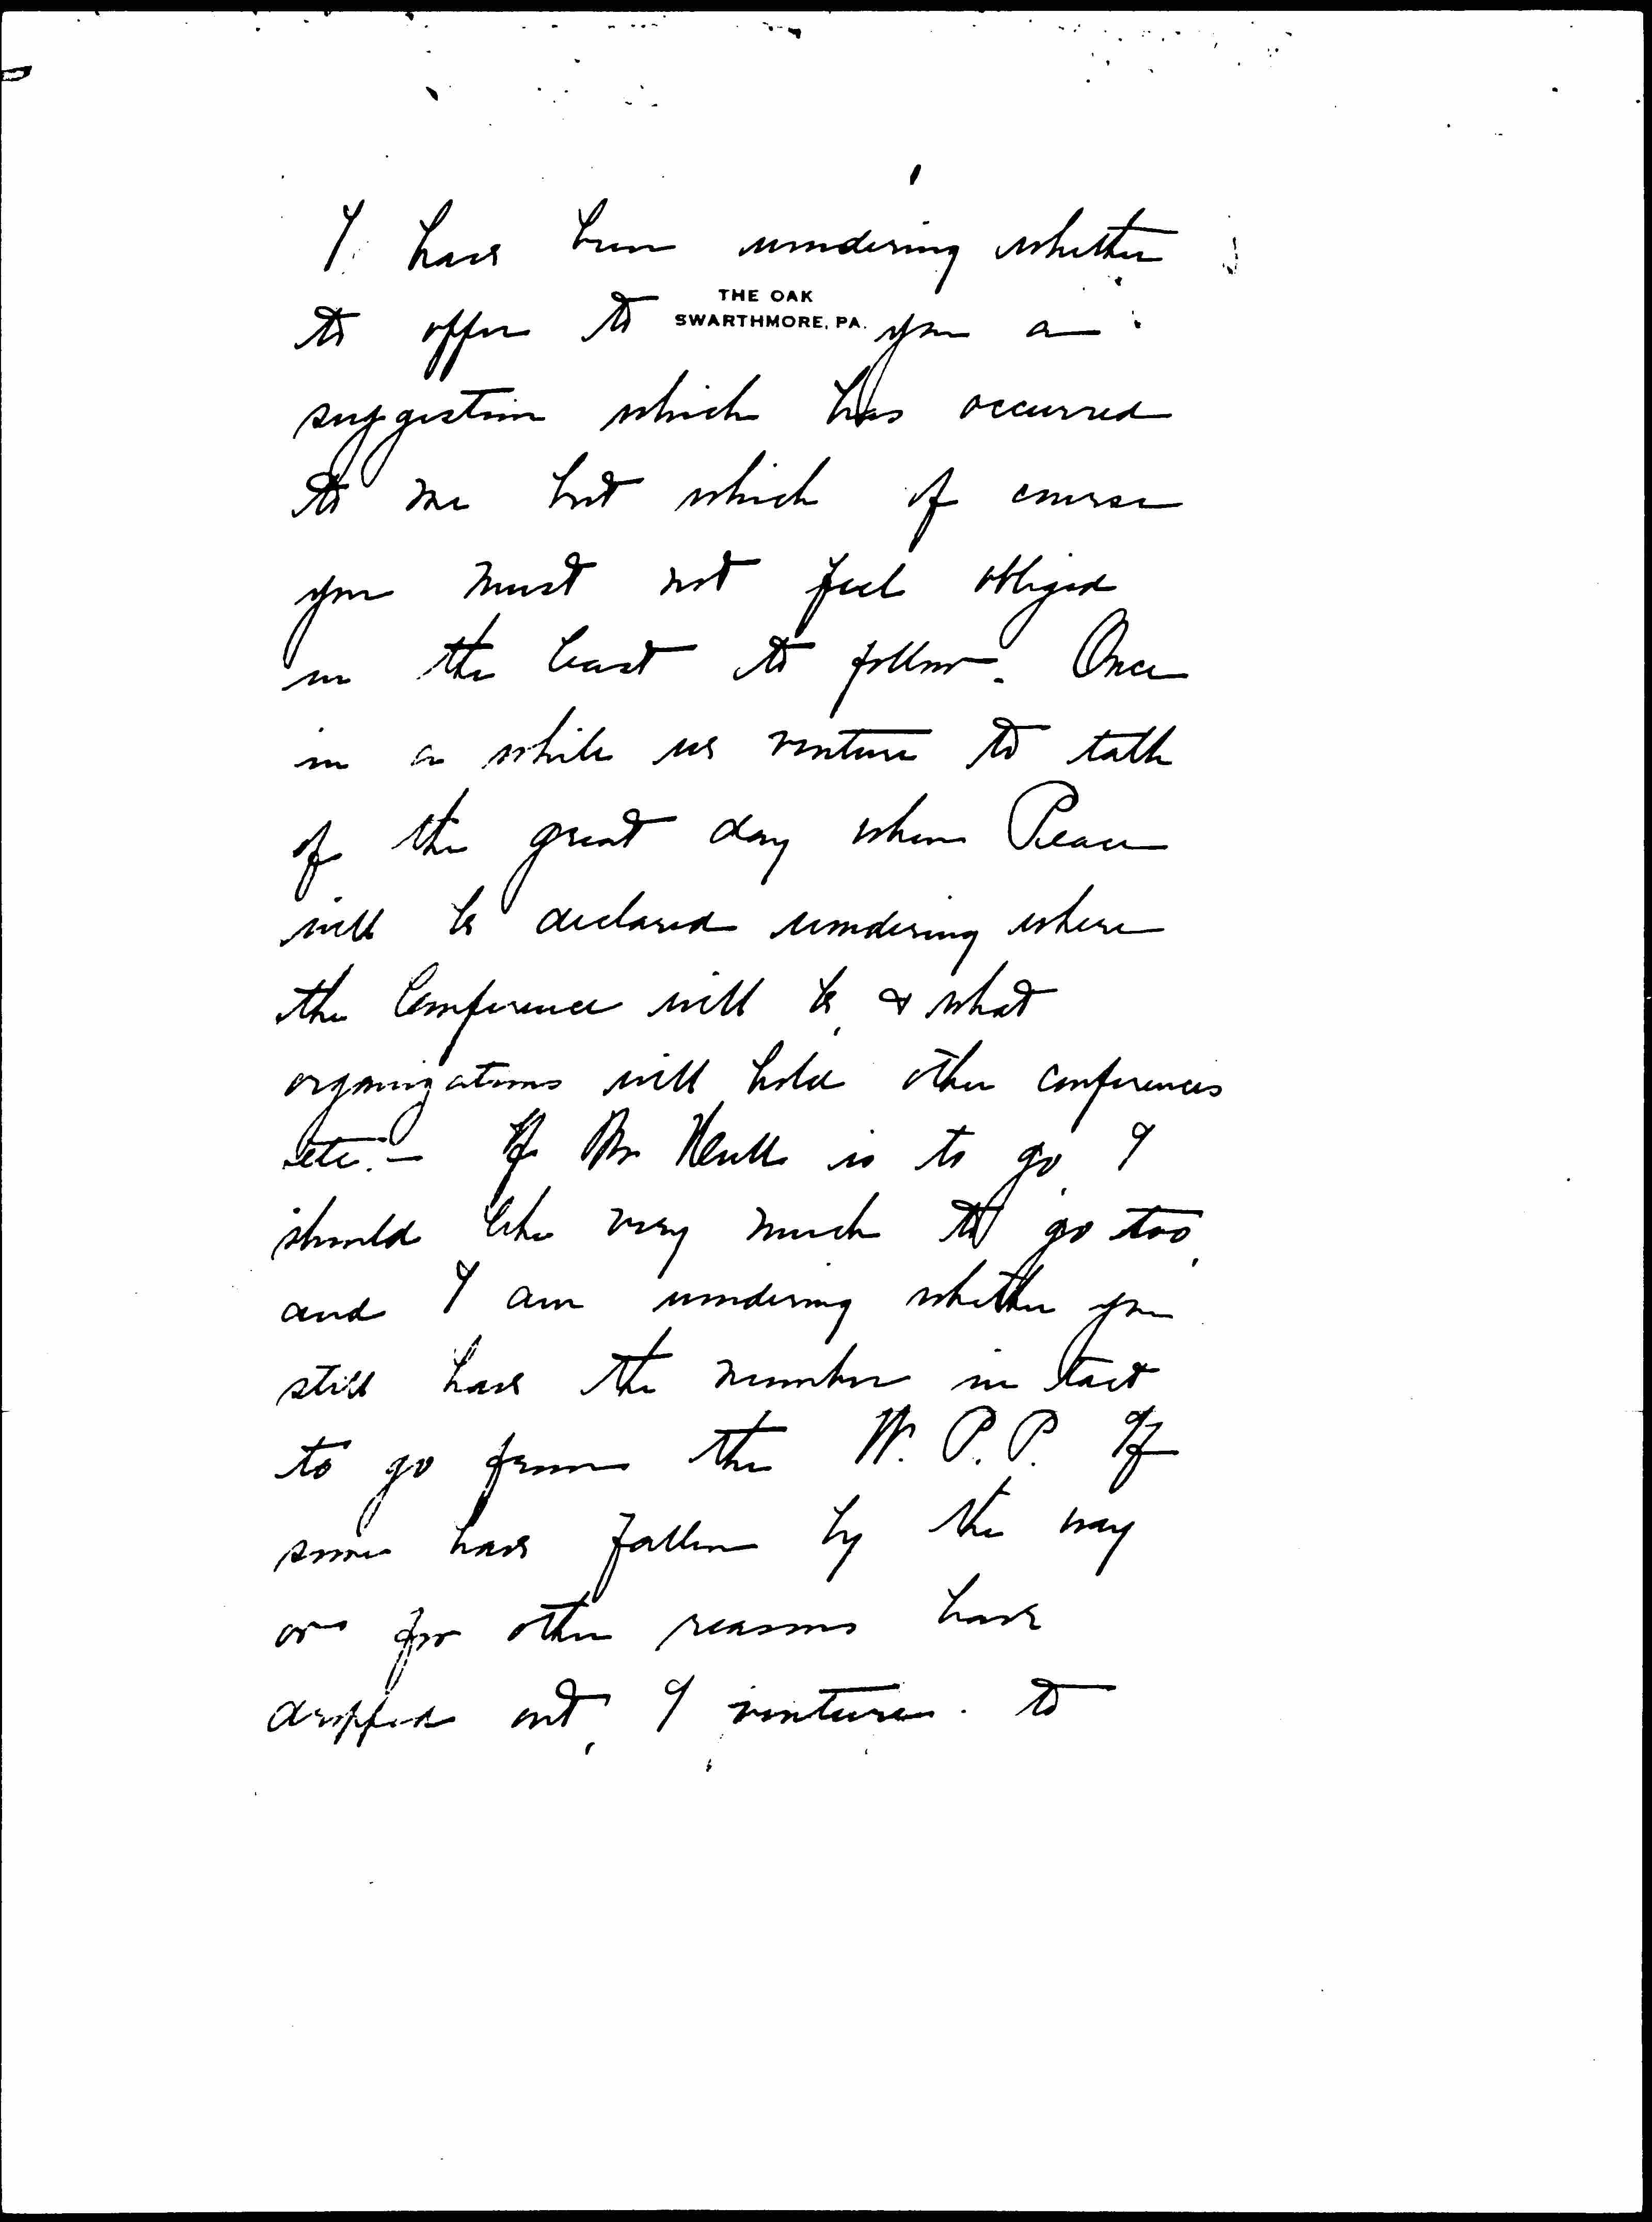 I have been wondering whether
THE OAK
SWARTHMORE, PA.
to offer to you a
suggestion which has occurred
to me but which of course
you must not feel obliged
in the least to follow. Once
in a while we venture to talk
of the great day when Peace
will be declared wondering where
the Conference will be, & what
organizations will hold other conferences
etc. — If Mr Hull is to go, I
should like very much to go too,
and I am wondering whether you
still have the number in tact
to go from the W. P. P. If
some have fallen by the way
or for other reasons have
dropped out, I venture to